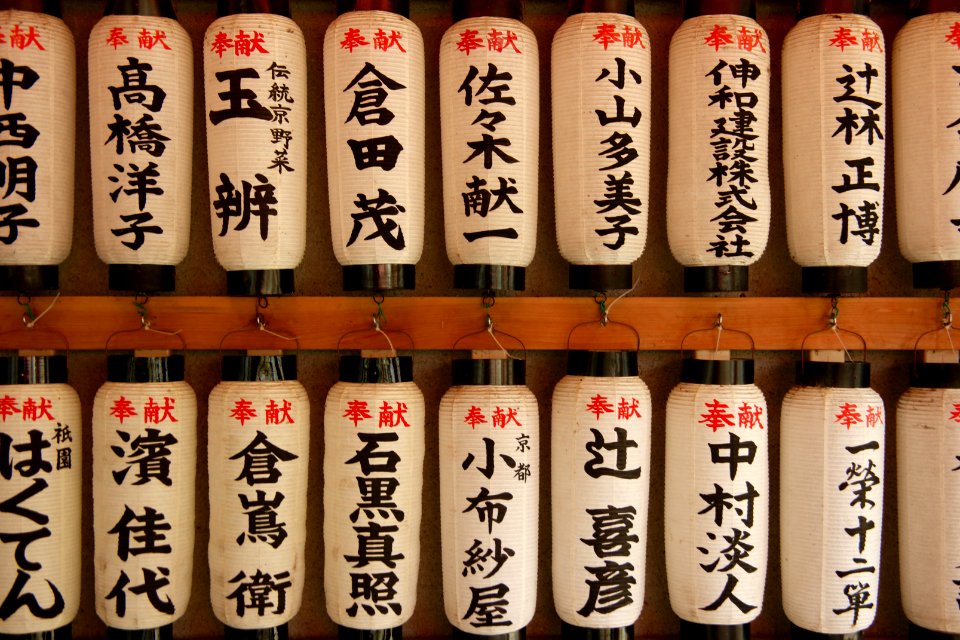 奉献
中西明子
奉献
高橋洋子
奉献
伝統京野菜
玉辨
奉献
倉田茂
奉献
佐々木献一
奉献
小山多美子
奉献
伸和建設株式会社
奉献
辻林正博
奉
奉献
祇園
はくてん
奉献
濱佳代
奉献
倉嶌衛
奉献
石黒真照
奉献
京都
小布紗屋
奉献
辻喜彦
奉献
中村淡人
奉献
一榮十二單
奉